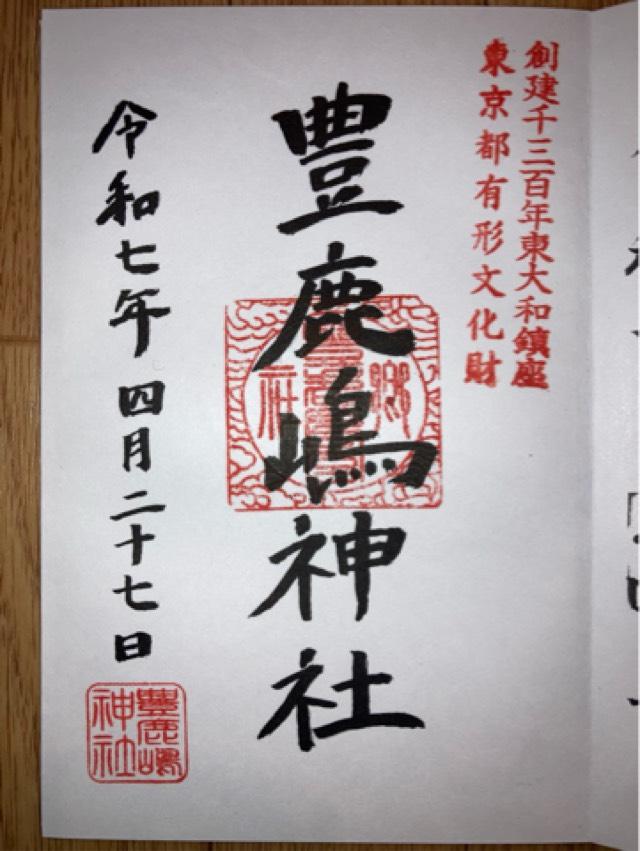 創建千三百年東大和鎮座
東京都有形文化財
豊鹿嶋神社
令和七年四月二十七日
豊鹿嶋
神社